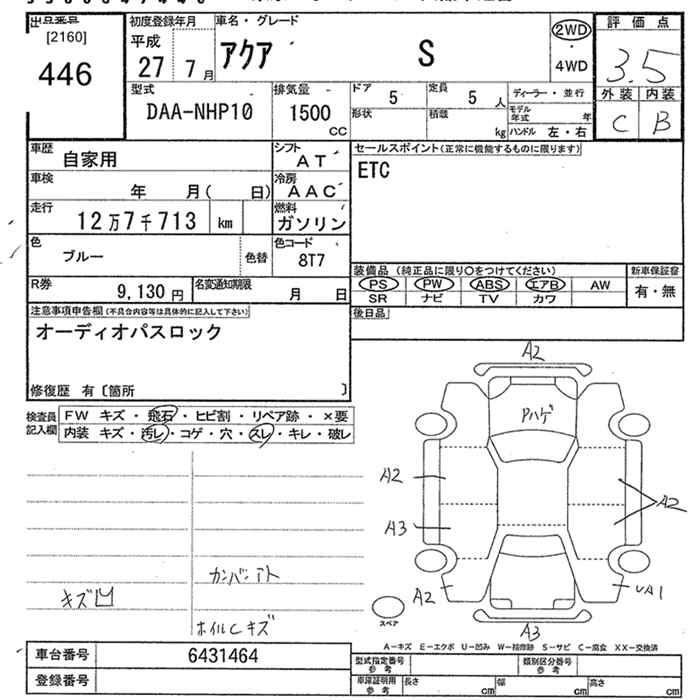 出品番号
[2160]
446
初度登録年月
平成
27 7月
車名・グレード
アクア S
2WD
4WD
評価点
3.5
外装 内装
C B
型式
DAA-NHP10
排気量
1500
CC
ドア
5
定員
5 人
形状
積載
kg
ディーラー・並行
モデル年式 年
ハンドル 左・右
車歴
自家用
シフト
AT
車検
年 月( 日)
冷房
AAC
走行
12万7千713 km
燃料
ガソリン
色
ブルー
色替
色コード
8T7
R券
9,130 円
名変通知期限
月 日
セールスポイント(正常に機能するものに限ります)
ETC
装備品 (純正品に限り○をつけてください)
新車保証書
PS PW ABS エアB AW
有・無
SR ナビ TV カワ
後日品
注意事項申告欄(不具合内容等は具体的に記入して下さい)
オーディオパスロック
修復歴 有〔箇所 〕
検査員記入欄
FW キズ・飛石・ヒビ割・リペア跡・×要
内装 キズ・汚レ・コゲ・穴・スレ・キレ・破レ
カンバンアト
キズ凹
ホイルCキズ
A2
Pハゲ
A2
A3
A2
A2
UA1
A3
スペア
A-キズ E-エクボ U-凹み W-補修跡 S-サビ C-腐食 XX-交換済
車台番号
6431464
登録番号
型式指定番号
参考
類別区分番号
参考
車庫証明用
参考
長さ cm
幅 cm
高さ cm